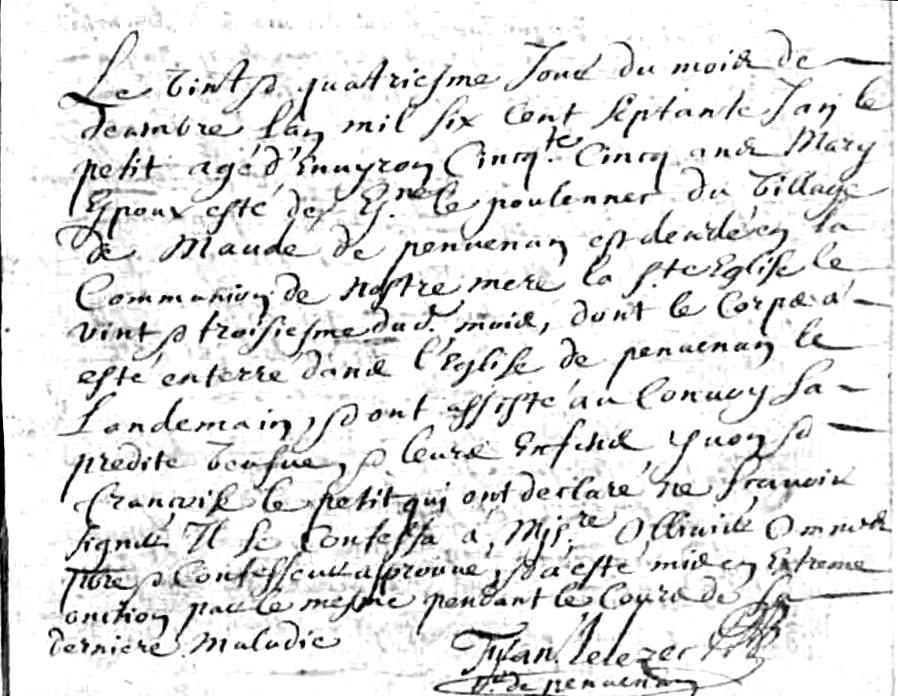 Le vint & quatriesme Jour du mois de
decembre l'an mil six cent septante Jan le
petit agé d'Enuyron Cincq.te Cincq ans Mary
Espoux esté de le poulennec du village
de Maude de penuenan est decedé en la
Communion de nostre mere la s.te Eglise le
vint & troisiesme dud. mois, dont le Corps a
esté enterré dans l'Eglise de penuenan le
Landemain, & ont assisté au Conuoy sa
predite veufue, & leurs Enfens yuon &
francois le petit qui ont declaré ne scauoir
signer Il se Confessa a Mis.re Olliuier Omnes
pbre & Confesseur approuué, & a esté mis en Extreme
onction par le mesme pendant le Cours de sa
derniere maladie
de penuenan